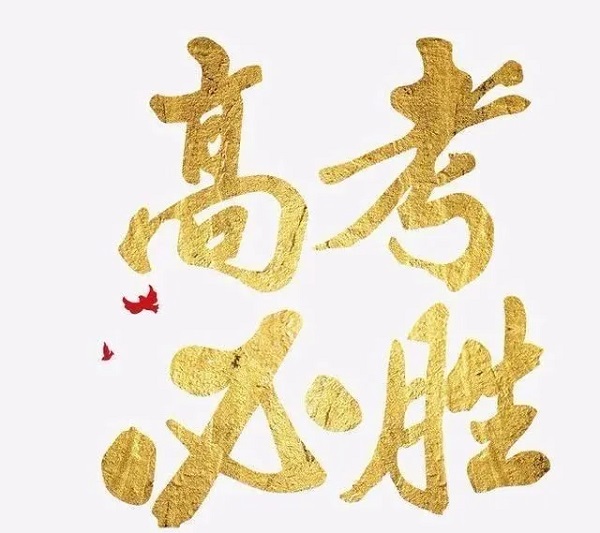 高考
必胜